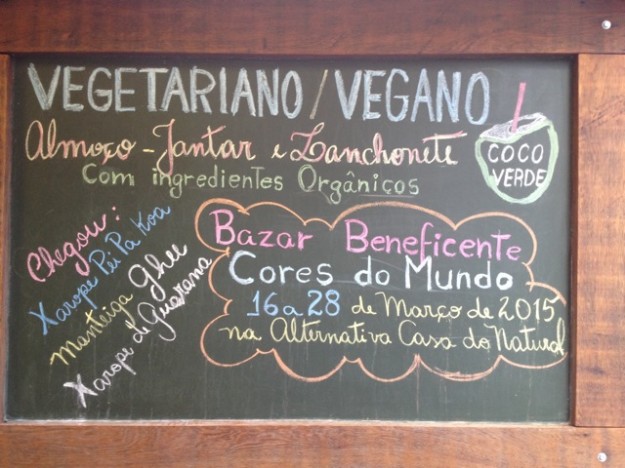 VEGETARIANO / VEGANO
Almoço - Jantar e Lanchonete
Com ingredientes Orgânicos
COCO
VERDE
Chegou:
Xarope Pei Pa Koa
Manteiga Ghee
Xarope de Guaraná
Bazar Beneficente
Cores do Mundo
16 a 28 de Março de 2015
na Alternativa Casa do Natural